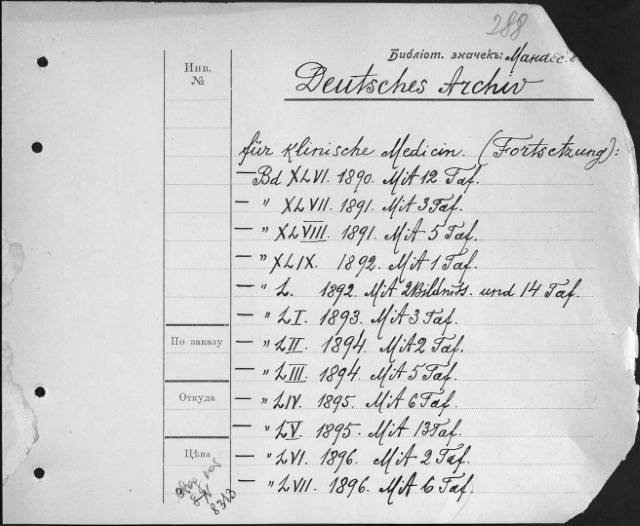 288
Библіот. значекъ:
Инв.
№
Deutsches Archiv
für klinische Medicin. (Fortsetzung):
— Bd XLVI. 1890. Mit 12 Taf.
— " XLVII. 1891. Mit 3 Taf.
— " XLVIII. 1891. Mit 5 Taf.
— " XLIX. 1892. Mit 1 Taf.
— " L. 1892. Mit 2 Bildniss. und 14 Taf.
— " LI. 1893. Mit 3 Taf.
По заказу
— " LII. 1894. Mit 2 Taf.
— " LIII. 1894. Mit 5 Taf.
Откуда
— " LIV. 1895. Mit 6 Taf.
— " LV. 1895. Mit 13 Taf.
Цѣна
— " LVI. 1896. Mit 2 Taf.
— " LVII. 1896. Mit 6 Taf.
8313